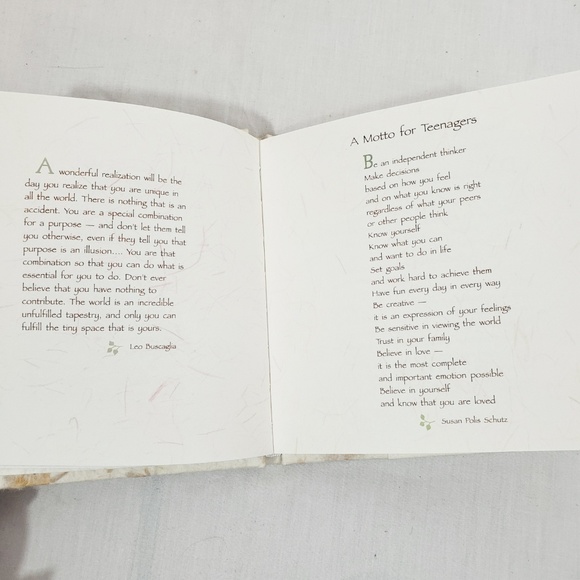 A wonderful realization will be the
day you realize that you are unique in
all the world. There is nothing that is an
accident. You are a special combination
for a purpose — and don't let them tell
you otherwise, even if they tell you that
purpose is an illusion.... You are that
combination so that you can do what is
essential for you to do. Don't ever
believe that you have nothing to
contribute. The world is an incredible
unfulfilled tapestry, and only you can
fulfill the tiny space that is yours.
Leo Buscaglia
A Motto for Teenagers
Be an independent thinker
Make decisions
based on how you feel
and on what you know is right
regardless of what your peers
or other people think
Know yourself
Know what you can
and want to do in life
Set goals
and work hard to achieve them
Have fun every day in every way
Be creative —
it is an expression of your feelings
Be sensitive in viewing the world
Trust in your family
Believe in love —
it is the most complete
and important emotion possible
Believe in yourself
and know that you are loved
Susan Polis Schutz